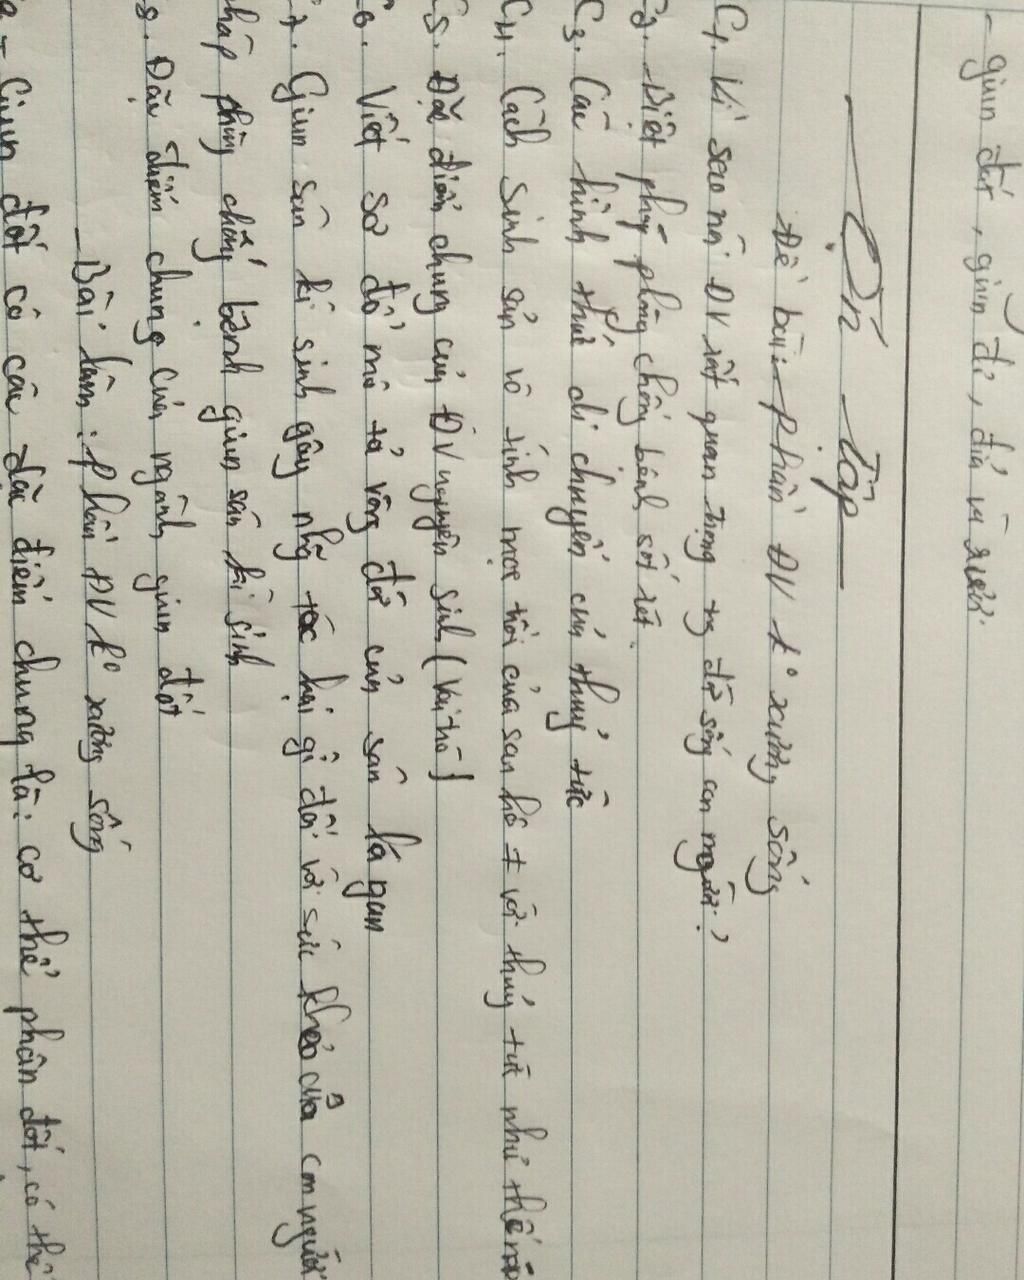 - giun đất, giun đỏ, đỉa và rươi.
Ôn Tập
Đề bài: phần ĐV k° xương sống
C1. Vì sao nói ĐV rất quan trọng trg đ/s sống con người?
C2. Biện pháp phòng chống bệnh sốt rét.
C3. Các hình thức di chuyển của thuỷ tức
C4. Cách sinh sản vô tính mọc chồi của san hô + với thuỷ tức như thế nào
C5. Đặc điểm chung của ĐV nguyên sinh (vai trò)
C6. Viết sơ đồ mô tả vòng đời của sán lá gan
C7. Giun sán kí sinh gây nhg tác hại gì đối với sức khỏe của con người
pháp phòng chống bệnh giun sán kí sinh
8. Đặc điểm chung của ngành giun đốt
Bài làm: phần ĐV k° xương sống
- Giun đốt có các đặc điểm chung là: cơ thể phân đốt, có thể